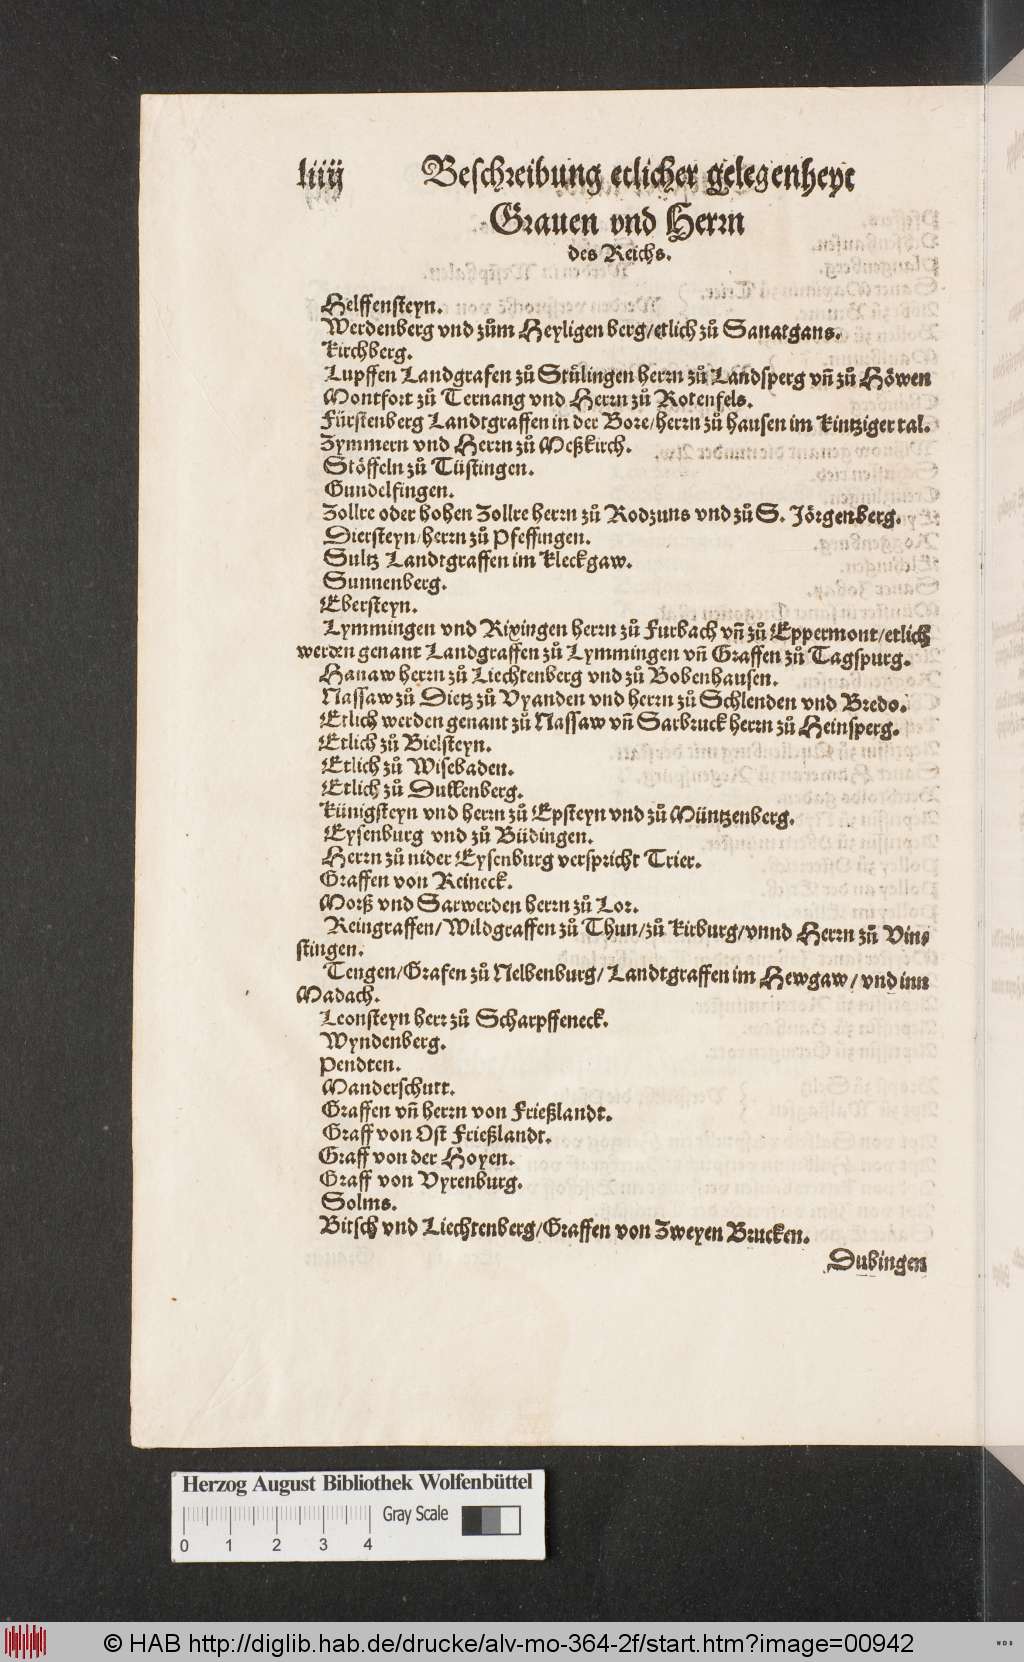 liiij Beschreibung etlicher gelegenheyt
Grauen vnd Herrn
des Reichs.
Helffensteyn.
Werdenberg vnd zům Heyligen berg/etlich zů Sanatgans.
Kirchberg.
Lupffen Landgrafen zů Stůlingen herrn zů Landsperg vñ zů Höwen
Montfort zů Ternang vnd Herrn zů Rotenfels.
Fürstenberg Landtgraffen in der Bore/herrn zů hausen im Kintziger tal.
Zymmern vnd Herrn zů Meßkirch.
Stöffeln zů Tüstingen.
Gundelfingen.
Zollre oder hohen Zollre herrn zů Rodzuns vnd zů S. Jörgenberg.
Diersteyn/herrn zů Pfeffingen.
Sultz Landtgraffen im Kleckgaw.
Sunnenberg.
Ebersteyn.
Lymmingen vnd Rixingen herrn zů Furbach vñ zů Eppermont/etlich
werden genant Landgraffen zů Lymmingen vñ Graffen zů Tagspurg.
Hanaw herrn zů Liechtenberg vnd zů Bobenhausen.
Nassaw zů Dietz zů Vyanden vnd herrn zů Schlenden vnd Bredo.
Etlich werden genant zů Nassaw vñ Sarbruck herrn zů Heinsperg.
Etlich zů Bielsteyn.
Etlich zů Wisebaden.
Etlich zů Dullenberg.
Künigsteyn vnd herrn zů Epsteyn vnd zů Müntzenberg.
Eysenburg vnd zů Büdingen.
Herrn zů nider Eysenburg verspricht Trier.
Graffen von Reineck.
Morß vnd Sarwerden herrn zů Lor.
Reingraffen/Wildgraffen zů Thun/zů Kirburg/vnnd Herrn zů Vins
stingen.
Tengen/Grafen zů Nelbenburg/Landtgraffen im Hewgaw/vnd inn
Madach.
Leonsteyn herr zů Scharpffeneck.
Wyndenberg.
Pendten.
Manderschutt.
Graffen vñ herrn von Frießlandt.
Graff von Ost Frießlandt.
Graff von der Hoyen.
Graff von Vyrenburg.
Solms.
Bitsch vnd Liechtenberg/Graffen von Zweyen Brucken.
Dubingen
Herzog August Bibliothek Wolfenbüttel
Gray Scale
0 1 2 3 4
© HAB http://diglib.hab.de/drucke/alv-mo-364-2f/start.htm?image=00942